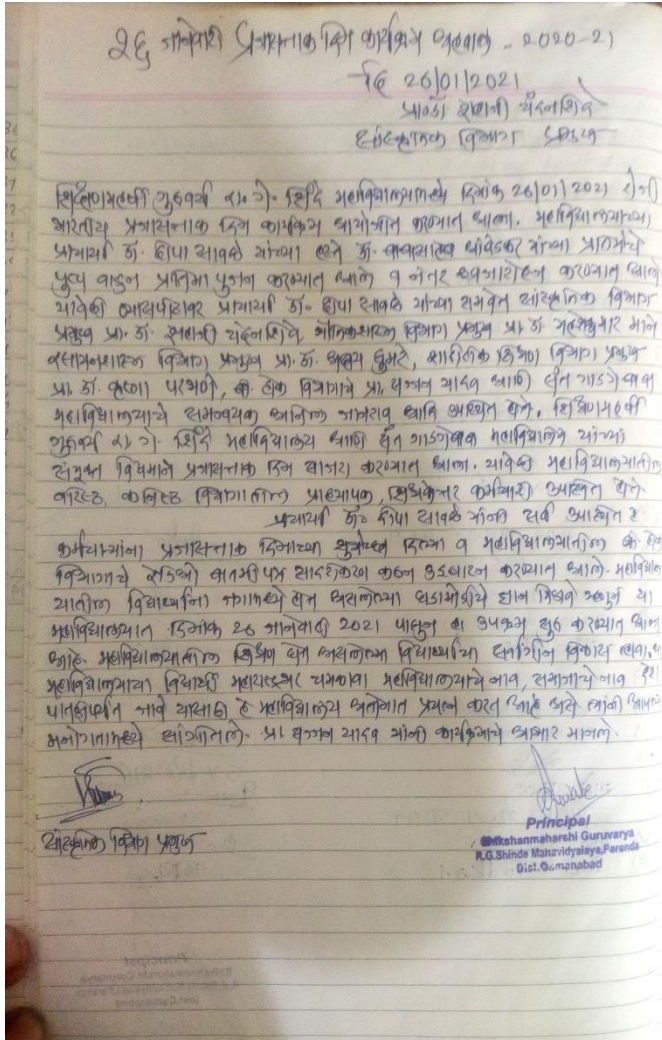 २६ जानेवारी प्रजासत्ताक दिन कार्यक्रम अहवाल - 2020-21
दि 26/01/2021
प्रा.डॉ शहाजी चंदनशिवे
सांस्कृतिक विभाग प्रमुख
शिक्षणमहर्षी गुरुवर्य रा. गे. शिंदे महाविद्यालयामध्ये दिनांक 26/01/2021 रोजी
भारतीय प्रजासत्ताक दिन कार्यक्रम आयोजीत करण्यात आला. महाविद्यालयाच्या
प्राचार्या डॉ. दीपा सावळे यांच्या हस्ते डॉ. बाबासाहेब आंबेडकर यांच्या प्रतिमेचे
पुष्प वाहुन प्रतिमा पुजन करण्यात आले व नंतर ध्वजारोहन करण्यात आले
यावेळी व्यासपीठावर प्राचार्या डॉ. दीपा सावळे यांच्या समवेत सांस्कृतिक विभाग
प्रमुख प्रा. डॉ. शहाजी चंदनशिवे, भौतिकशास्त्र विभाग प्रमुख प्रा. डॉ. महेशकुमार माने
रसायनशास्त्र विभाग प्रमुख प्रा. डॉ. अक्षय घुमरे, शारीरीक शिक्षण विभाग प्रमुख
प्रा. डॉ. कृष्णा परभणे, विभागाचे प्रा. सज्जन यादव आणि संत गाडगेबाबा
महाविद्यालयाचे समन्वयक अनिल जानराव आदि उपस्थित होते. शिक्षणमहर्षी
गुरुवर्य रा. गे. शिंदे महाविद्यालय आणि संत गाडगेबाबा महाविद्यालय यांच्या
संयुक्त विद्यमाने प्रजासत्ताक दिन साजरा करण्यात आला. यावेळी महाविद्यालयातील
वरिष्ठ, कनिष्ठ विभागातील प्राध्यापक, शिक्षकेत्तर कर्मचारी उपस्थित होते
प्राचार्या डॉ. दीपा सावळे यांनी सर्व उपस्थित
कर्मचाऱ्यांना प्रजासत्ताक दिनाच्या शुभेच्छा दिल्या व महाविद्यालयातील
विभागाचे रेडिओ बातमीपत्र सादरीकरण करून उद्घाटन करण्यात आले. महाविद्या
यातील विद्यार्थ्यांना जगामध्ये होत असलेल्या घडामोडीचे ज्ञान मिळावे म्हणुन या
महाविद्यालयात दिनांक 26 जानेवारी 2021 पासुन हा उपक्रम सुरु करण्यात आला
आहे. महाविद्यालयातील शिक्षण घेत असलेल्या विद्यार्थ्यांचा सर्वांगीन विकास व्हावा,
महाविद्यालयाचा विद्यार्थी महाराष्ट्रभर चमकावा महाविद्यालयाचे नाव, समाजाचे नाव देश
पातळीपर्यंत जावे यासाठी हे महाविद्यालय अतोनात प्रयत्न करत आहे असे त्यांनी आपल्या
मनोगतामध्ये सांगितले. प्रा. सज्जन यादव यांनी कार्यक्रमाचे आभार मानले.
सांस्कृतिक विभाग प्रमुख
Principal
Shikshanmaharshi Guruvarya
R.G.Shinde Mahavidyalaya,Paranda
Dist.Osmanabad